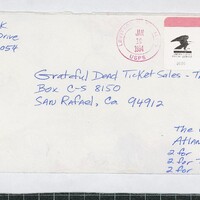 K
Drive
054
JAN
1994
USPS
Grateful Dead Ticket Sales - T
Box C-S 8150
San Rafael, Ca 94912
The
Atlan
2 for
2 for T
2 for